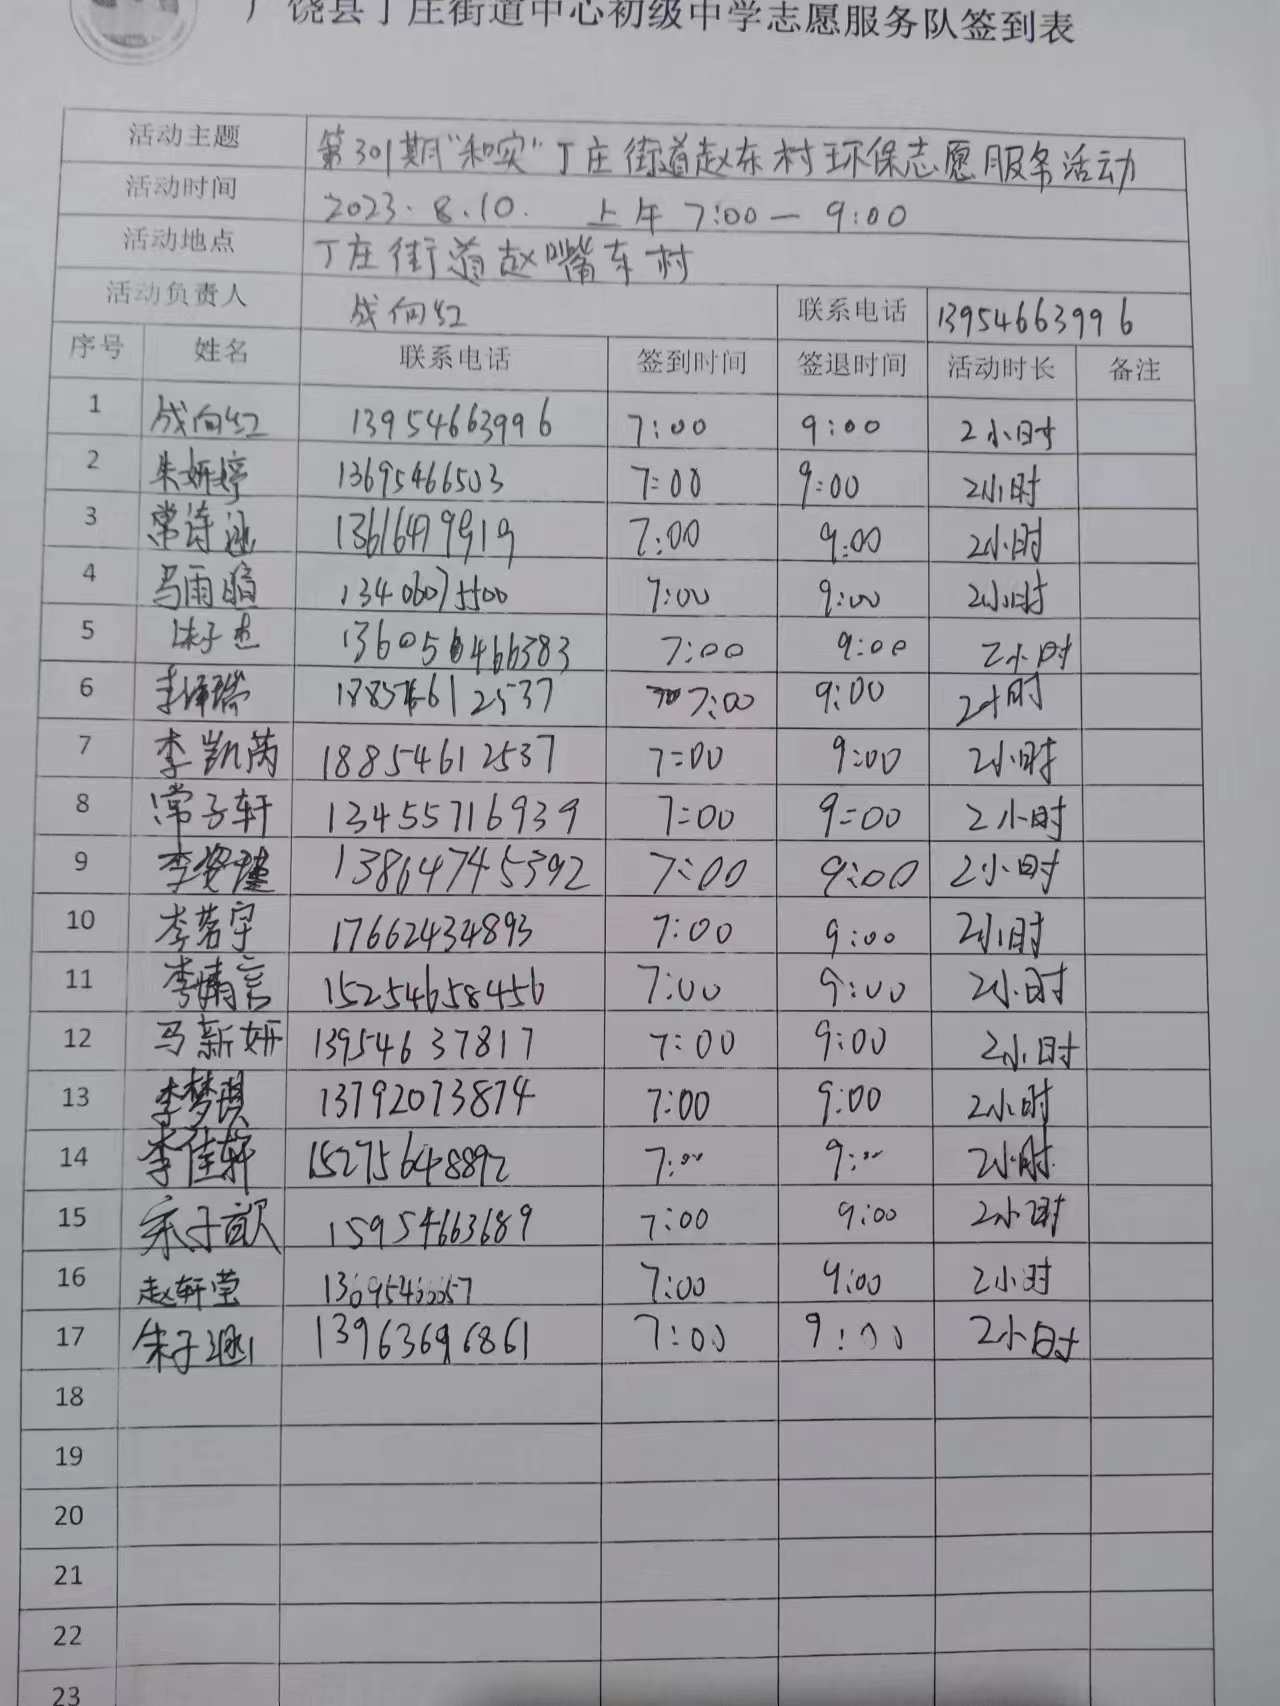 广饶县丁庄街道中心初级中学志愿服务队签到表
活动主题 第301期"和实"丁庄街道赵东村环保志愿服务活动
活动时间 2023.8.10. 上午7:00—9:00
活动地点 丁庄街道赵嘴东村
活动负责人 成向红 联系电话 13954663996
序号 姓名 联系电话 签到时间 签退时间 活动时长 备注
1 成向红 13954663996 7:00 9:00 2小时
2 朱妍婷 13695466503 7:00 9:00 2小时
3 常诗涵 7:00 9:00 2小时
4 马雨暄 13406075500 7:00 9:00 2小时
5 7:00 9:00 2小时
6 7:00 9:00 2小时
7 李凯芮 18854612537 7:00 9:00 2小时
8 常子轩 13455716939 7:00 9:00 2小时
9 13864745392 7:00 9:00 2小时
10 李茗宇 17662434893 7:00 9:00 2小时
11 李婧言 15254658456 7:00 9:00 2小时
12 马新妍 13954637817 7:00 9:00 2小时
13 李梦琪 13792073874 7:00 9:00 2小时
14 李佳轩 15275648892 7:00 9:00 2小时
15 15954663689 7:00 9:00 2小时
16 赵轩莹 7:00 9:00 2小时
17 朱子涵 13963696861 7:00 9:00 2小时
18
19
20
21
22
23